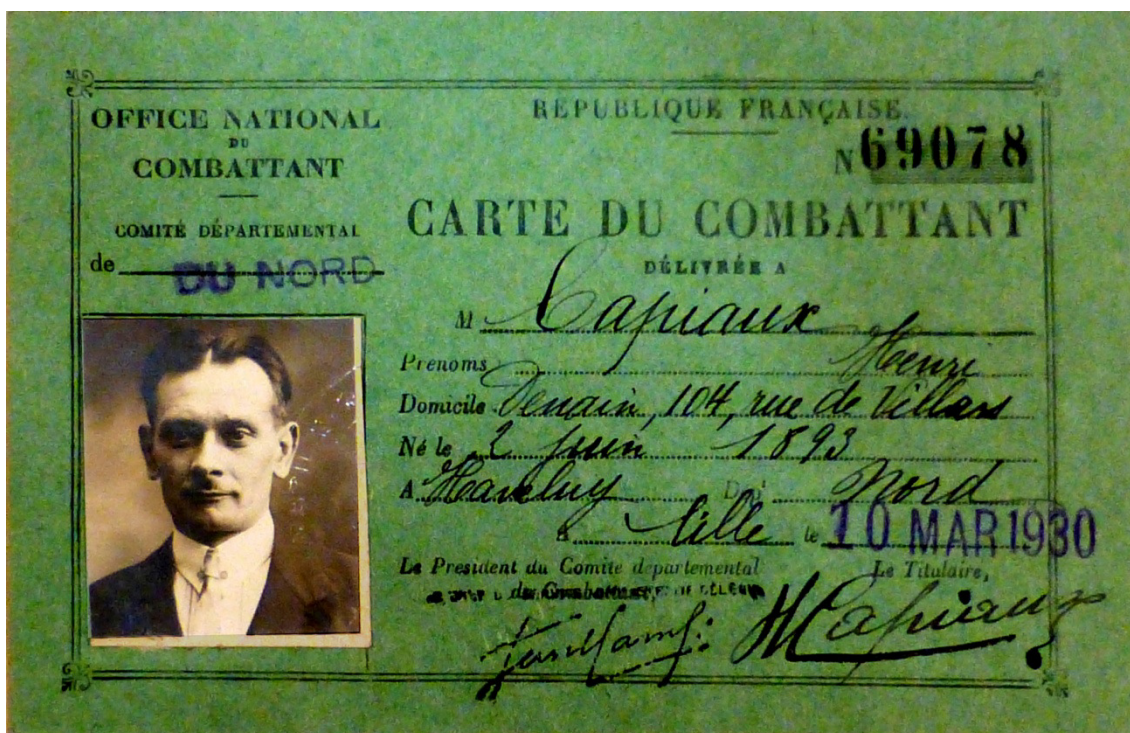 OFFICE NATIONAL
DU
COMBATTANT
COMITÉ DÉPARTEMENTAL
de DU NORD
RÉPUBLIQUE FRANÇAISE.
N 69078
CARTE DU COMBATTANT
DÉLIVRÉE A
M Capiaux
Prénoms Henri
Domicile Denain, 104, rue de Villars
Né le 2 Juin 1893
A Haveluy Dpt Nord
à Lille le 10 MAR 1930
Le Président du Comité départemental
du Combattant,
Le Titulaire,
HCapiaux